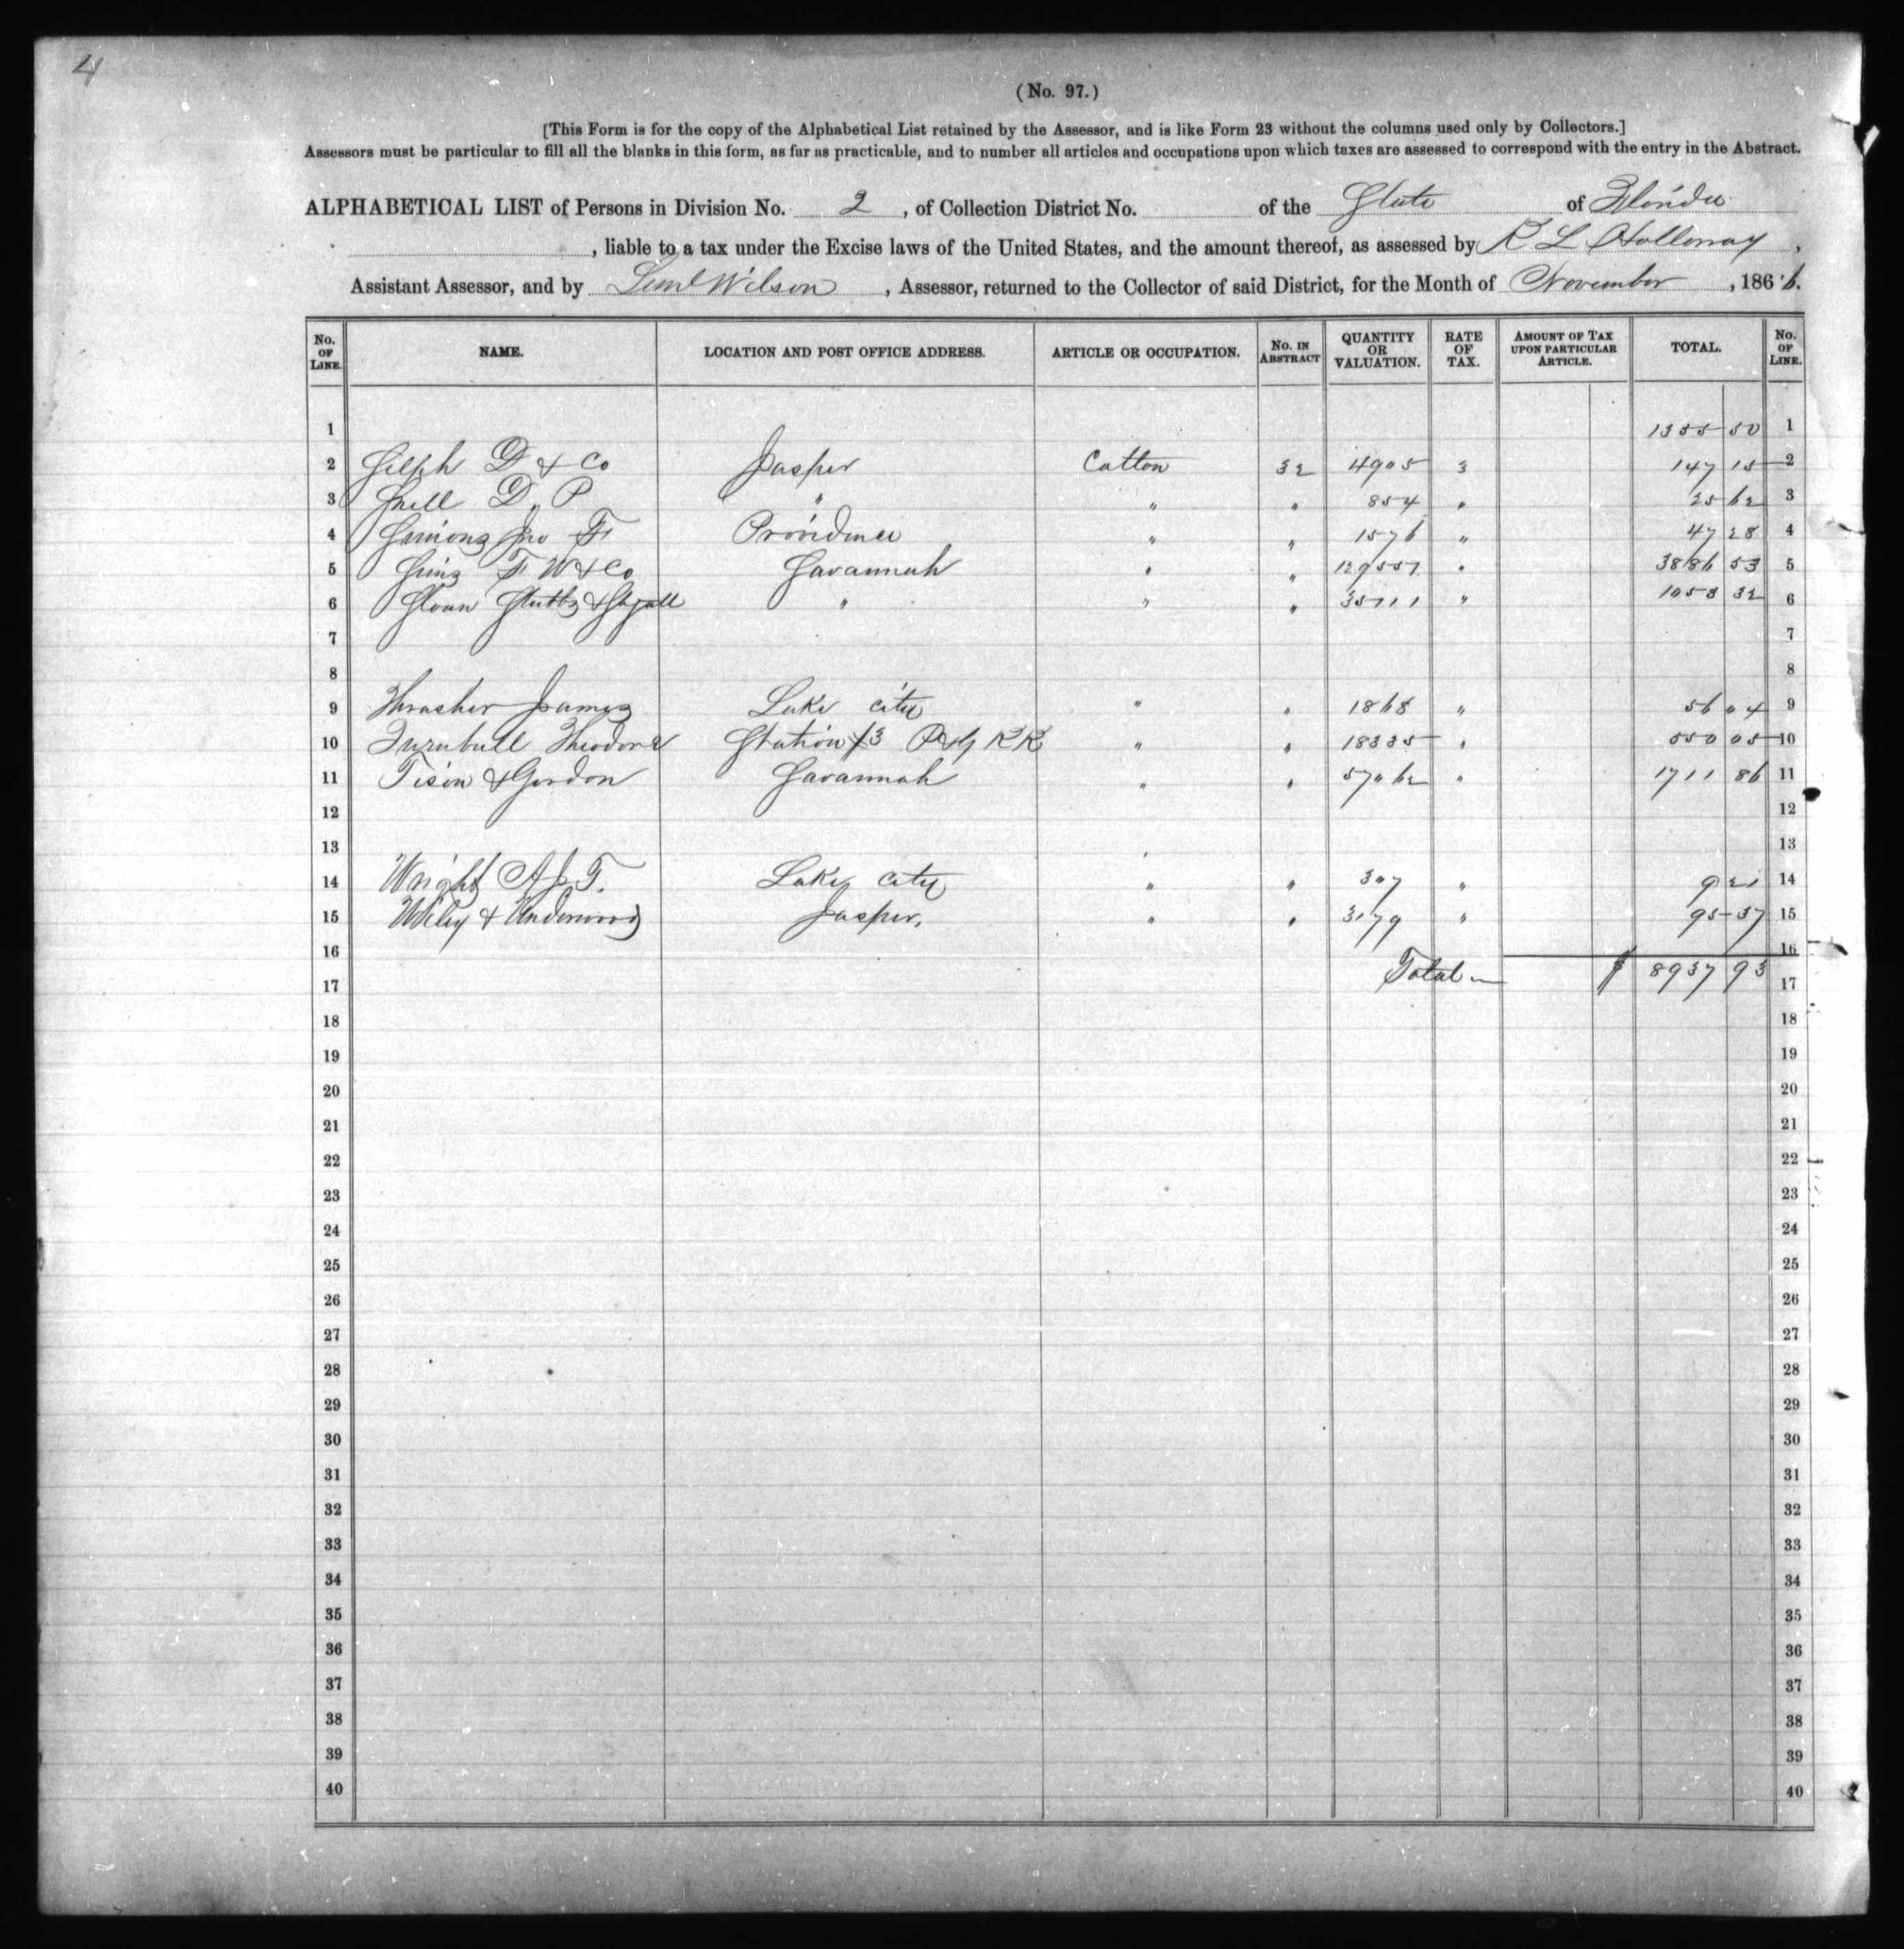 4
(No. 97.)
[This Form is for the copy of the Alphabetical List retained by the Assessor, and is like Form 23 without the columns used only by Collectors.]
Assessors must be particular to fill all the blanks in this form, as far as practicable, and to number all articles and occupations upon which taxes are assessed to correspond with the entry in the Abstract.
ALPHABETICAL LIST of Persons in Division No. 2, of Collection District No. of the State of Florida
, liable to a tax under the Excise laws of the United States, and the amount thereof, as assessed by R L Holloway,
Assistant Assessor, and by Leml Wilson, Assessor, returned to the Collector of said District, for the Month of November, 1866.
No. OF LINE. NAME. LOCATION AND POST OFFICE ADDRESS. ARTICLE OR OCCUPATION. No. IN ABSTRACT QUANTITY OR VALUATION. RATE OF TAX. AMOUNT OF TAX UPON PARTICULAR ARTICLE. TOTAL. No. OF LINE.
1 1355 50 1
2 D & Co Jasper Cotton 32 4905 3 147 15 2
3 Snell D, P " " " 854 " 25 62 3
4 Simons Jno F Providence " " 1576 " 47 28 4
5 Sims F W & Co Savannah " " 129551 " 3886 53 5
6 Sloan Stubbs & " " " 35111 " 1053 32 6
7 7
8 8
9 Thrasher James Lake City " " 1868 " 56 04 9
10 Turnbull Theodore Station 13 P & G RR " " 18335 " 550 05 10
11 Tison & Gordon Savannah " " 57062 " 1711 86 11
12 12
13 13
14 Wright A J T. Lake City " " 307 " 9 21 14
15 Wiley & Underwood Jasper, " " 3179 " 95 37 15
16 16
17 Total $ 8937 93 17
18 18
19 19
20 20
21 21
22 22
23 23
24 24
25 25
26 26
27 27
28 28
29 29
30 30
31 31
32 32
33 33
34 34
35 35
36 36
37 37
38 38
39 39
40 40